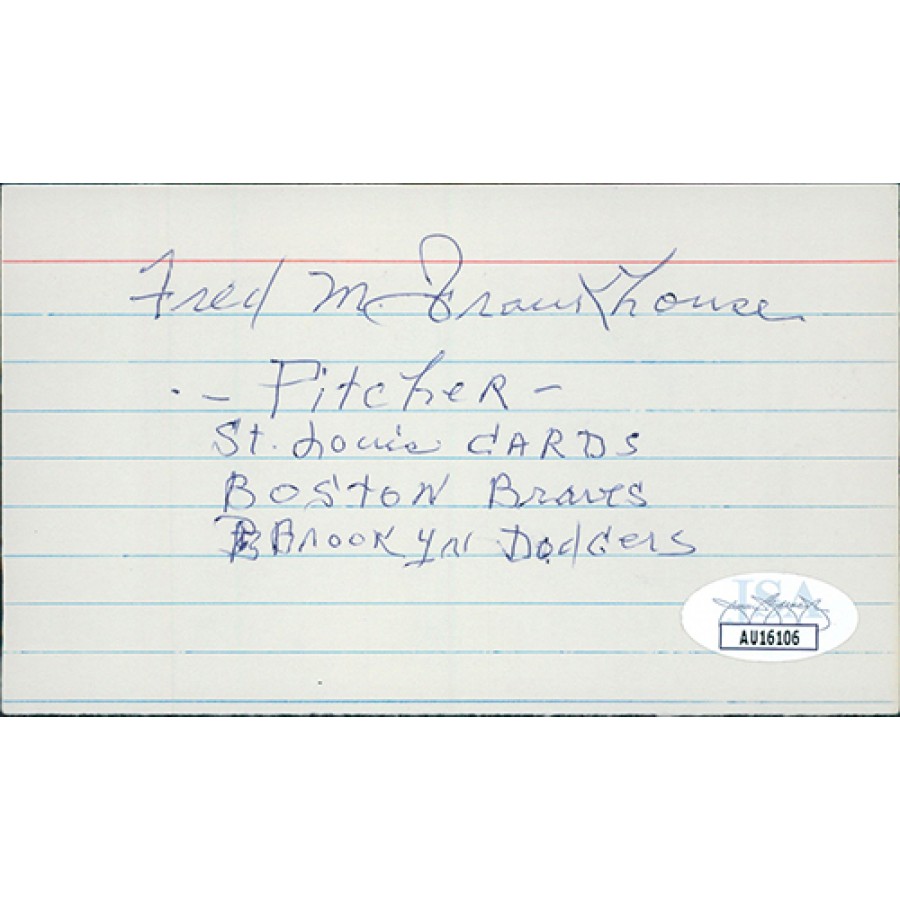 Fred M. Frankhouse
- Pitcher -
St. Louis CARDS
BOSTON Braves
BROOKlyn Dodgers
JSA
AU16106